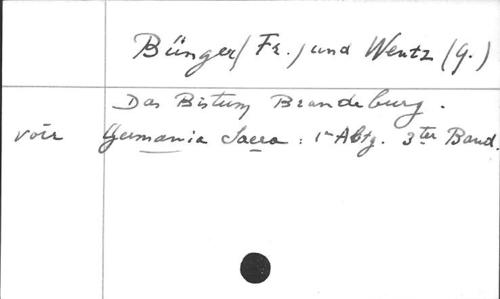 Bünger (Fr.) und Wentz (G.)
Das Bistum Brandeburg.
voir Germania Sacra : 1re Abtg. 3ter Band.